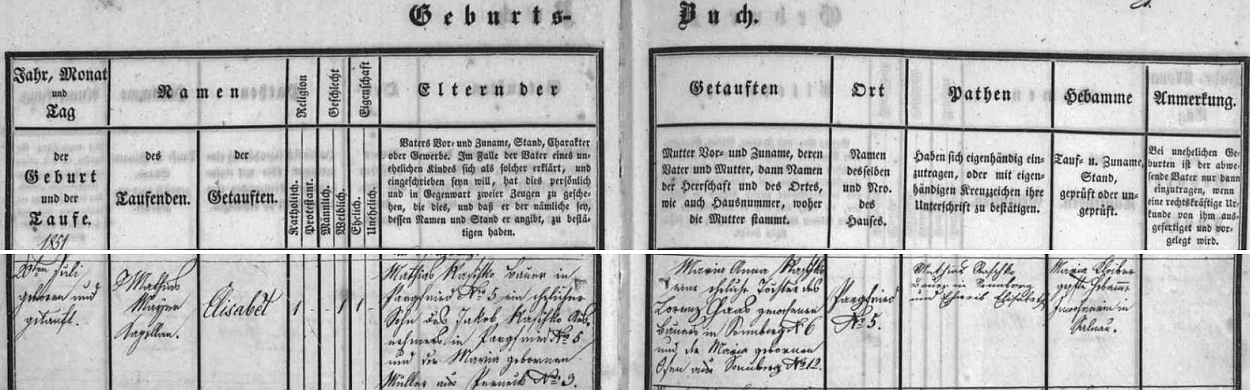 Geburts-
Buch.
Jahr, Monat
und
Tag
Namen
Religion
Geschlecht
Eigenschaft
Eltern der
der
Geburt
und der
Taufe.
des
Taufenden.
der
Getauften.
Katholisch.
Protestant.
Männlich.
Weiblich.
Ehelich.
Unehelich.
Vaters Vor- und Zuname, Stand, Charakter
oder Gewerbe. Im Falle der Vater eines un-
ehelichen Kindes sich als solcher erklärt, und
eingeschrieben seyn will, hat dies persönlich
und in Gegenwart zweier Zeugen zu gesche-
hen, die dies, und daß er der nämliche sey,
dessen Namen und Stand er angibt, zu bestä-
tigen haben.
1851
Juli
geboren und
getauft.
Mathias
Mayer
Kapellan.
Elisabet
1 - - 1 1 -
Mathias Raschko Bauer in
Pargfried No 5 ein ehelicher
Sohn des Jakob Raschko Aus-
nehmers in Pargfried No 5
und der Maria gebornen
Müller aus Perneck No 3.
Getauften
Ort
Pathen
Hebamme
Anmerkung.
Mutter Vor- und Zuname, deren
Vater und Mutter, dann Namen
der Herrschaft und des Ortes,
wie auch Hausnummer, woher
die Mutter stammt.
Namen
desselben
und Nro.
des
Hauses.
Haben sich eigenhändig ein-
zutragen, oder mit eigen-
händigen Kreuzzeichen ihre
Unterschrift zu bestätigen.
Tauf- u. Zuname,
Stand,
geprüft oder un-
geprüft.
Bei unehelichen Ge-
burten ist der abwe-
sende Vater nur dann
einzutragen, wenn
eine rechtskräftige Ur-
kunde von ihm aus-
gefertiget und vor-
gelegt wird.
Maria Anna Raschko
eine eheliche Tochter des
Lorenz Haas gewesenen
Bauers in Sonnberg No 6
und der Maria gebornen
aus Sonnberg No 12.
Pargfried
No 5.
Mathias Raschko
Bauer in Sonnberg
und Elisabeth
Maria
gepfte Hebamme
in